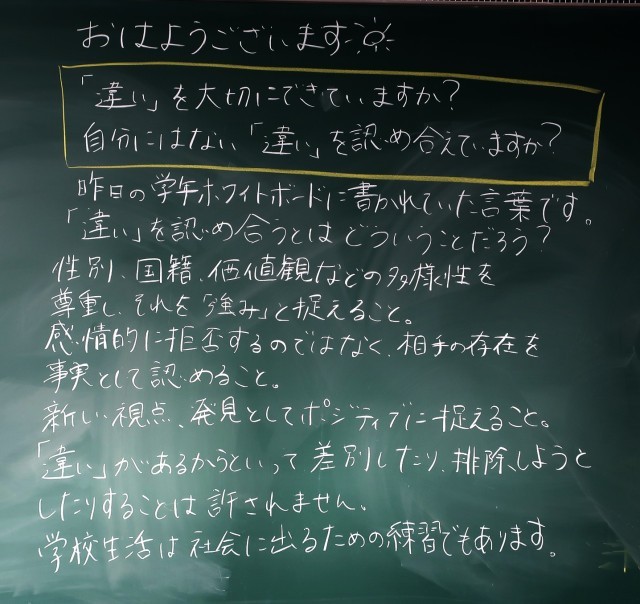 おはようございます
「違い」を大切にできていますか?
自分にはない「違い」を認め合えていますか?
昨日の学年ホワイトボードに書かれていた言葉です。
「違い」を認め合うとはどういうことだろう?
性別、国籍、価値観などの多様性を
尊重し、それを「強み」と捉えること。
感情的に拒否するのではなく、相手の存在を
事実として認めること。
新しい視点、発見としてポジティブに捉えること。
「違い」があるからといって差別したり、排除しようと
したりすることは許されません。
学校生活は社会に出るための練習でもあります。